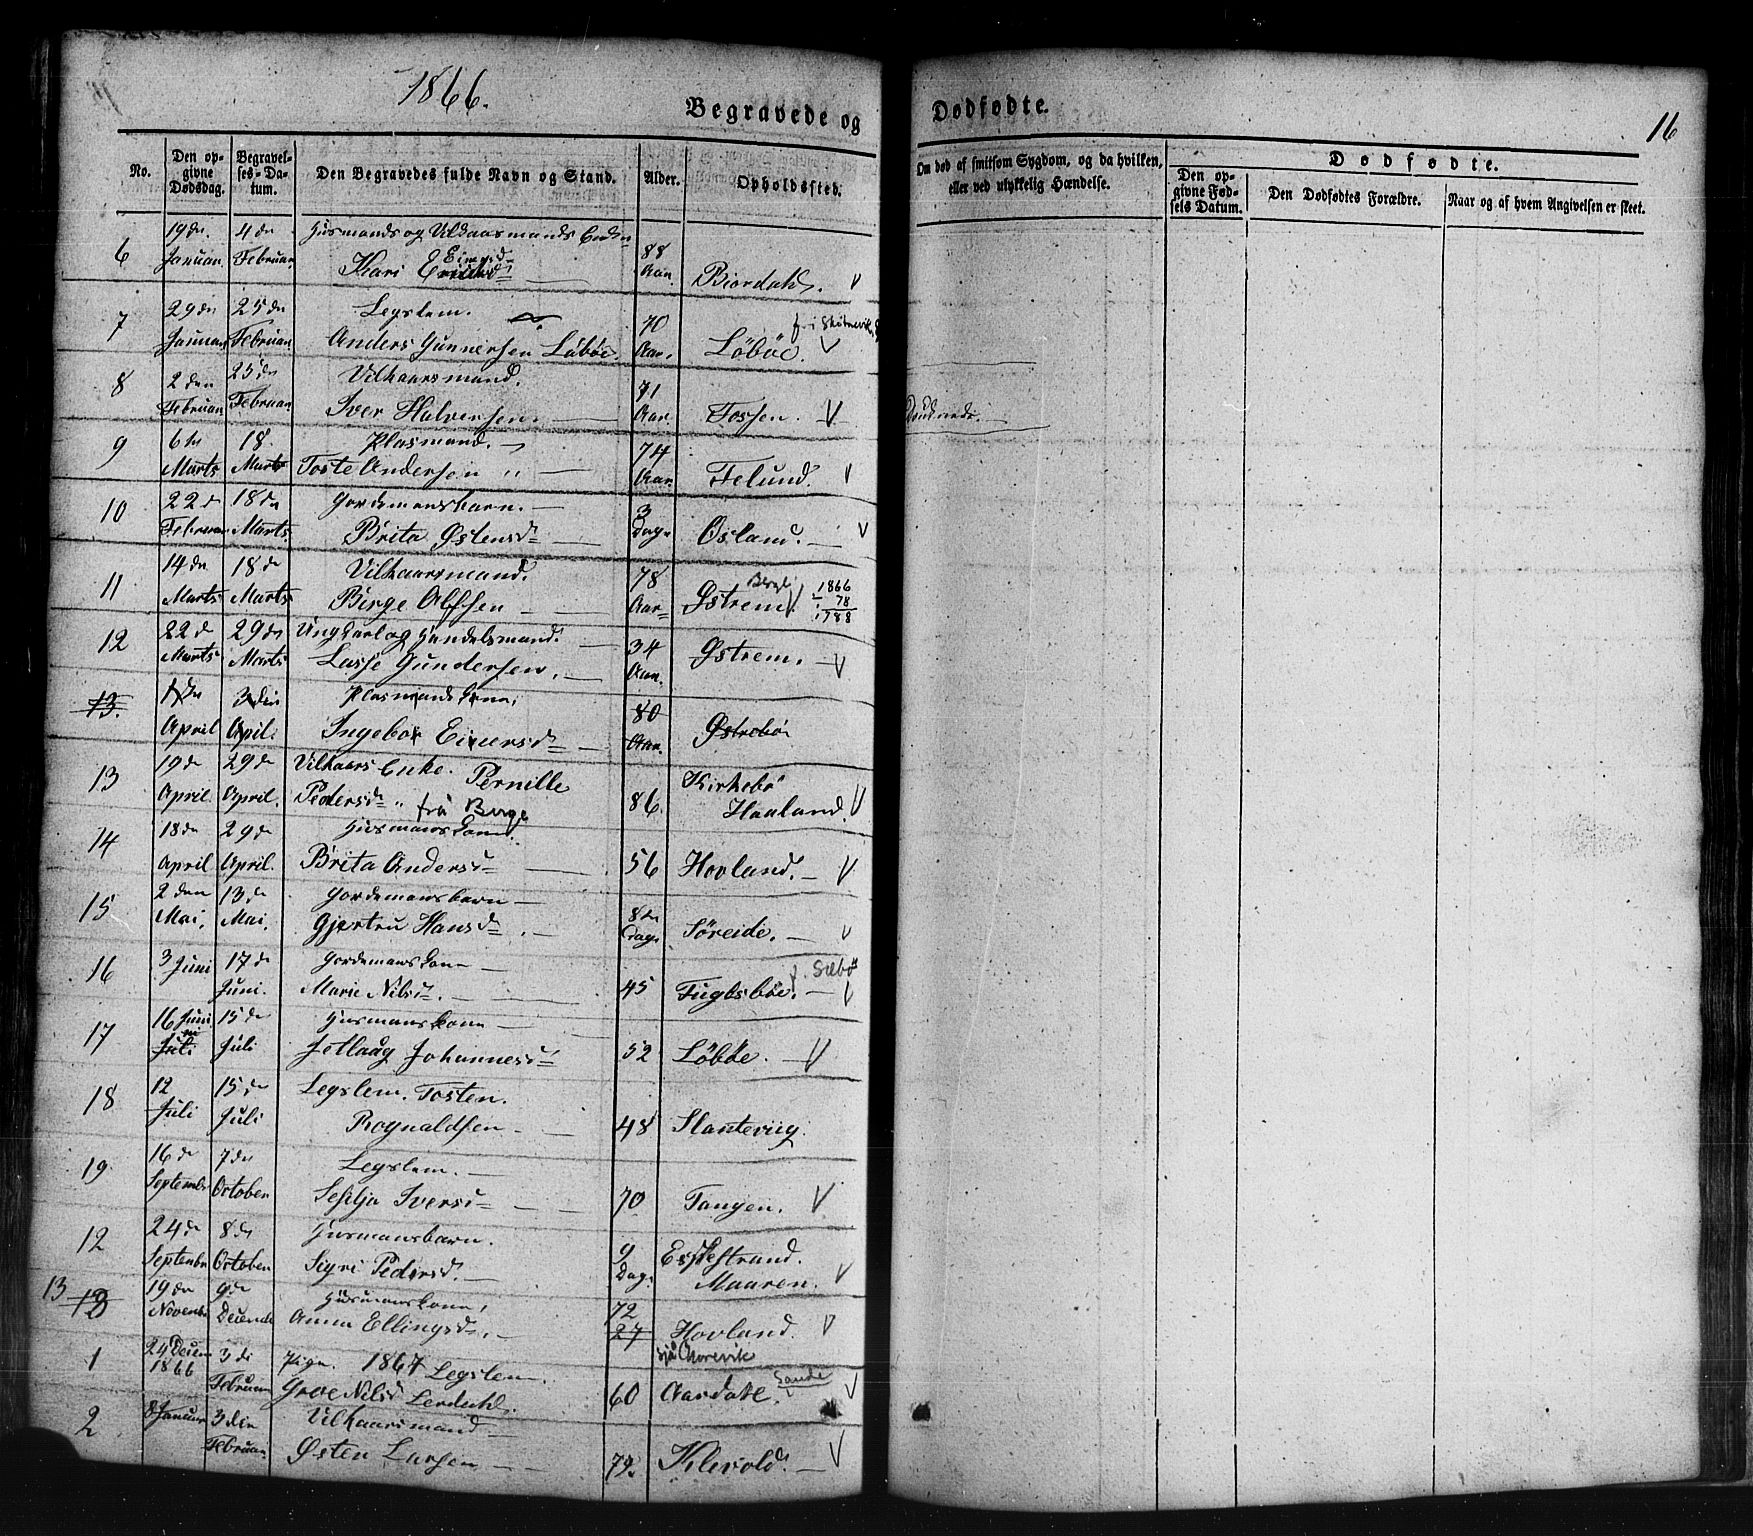 1866.
Begravede og Dødfødte.
16
No.
Den opgivne Dødsdag.
Begravelses-Datum.
Den Begravedes fulde Navn og Stand.
Alder.
Opholdssted.
Om død af smitsom Sygdom, og da hvilken, eller ved ulykkelig Hændelse.
Dødfødte.
Den opgivne Fødsels Datum.
Den Dødfødtes Forældre.
Naar og af hvem Angivelsen er skeet.
19de 4de Huusmands og Vilkaarsmands Enke
6 Januar Februar Kari Einersd 88 Aar Biordahl. V
29de 25de Legslem. f. i Skånevik
7 Januar Februar Anders Gunnersen Løbøe. 70 Aar. Løbøe. V
8 2den 25de Vilkaarsmand. 71
Februar Februar Iver Halvorsen. Aar. Fossen. V
9 6te 18. Plasmand. 74
Marts Marts Toste Andersen Aar. Felund. V
10 22de 18de Gordemansbarn. 3
Februar Marts. Brita Østensd Dage Øsland. V
11 14de 18de Vilkaarsmand. 78 Berge 1866
Marts Marts Birge Alfsen Aar Østrem V 78
1788
12 22de 29de Ungkarl og Handelsmand. 34
Marts Marts Lasse Gundersen. Aar. Østrem. V
13. 1ste 3die Plasmands Kone, 80
April April Ingebor Einersd Aar. Østrebø
13 19de 29de Vilkaars Enke. Pernille Kirkebø
April. April. Pedersd frå Berge 86. Haaland. V
14 18de 29de Husmans Kone.
April April. Brita Andersd 56 Hovland. V
15 2den 13de Gordemansbarn
Mai. Mai. Gjertru Hansd. 8te Dage Søreide. V
16 3 Juni 17de Gordemans Kone f. Silbø
Juni. Marie Nilsd. 45 Fuglebøe. V
17 16 Juni 15de Husmans Kone
Juli Juli Johannesd 52 Løbøe. V
18 12 15de Legslem. Tosten.
Juli Juli Rognaldsen 48
19 16de 7de Legslem.
September October Iversd 70 Tangen. V
12 24de 8de Husmansbarn. 9
September October Sigri Pedersd. Dage Eskestrand.
Maaren. V
13 13 19de 9de Husmans Kone, 72
November December Anna Ellingsd. 27 Hovland. V
1 24 Decem 3di Pige. 1867 Legslem. sjå
1866 Februar Groe Nilsd 60 Aardahl. Sande V
2 8 Januar 3den Vilkaarsmand
Februar Østen Larsen 79. Klevold. V